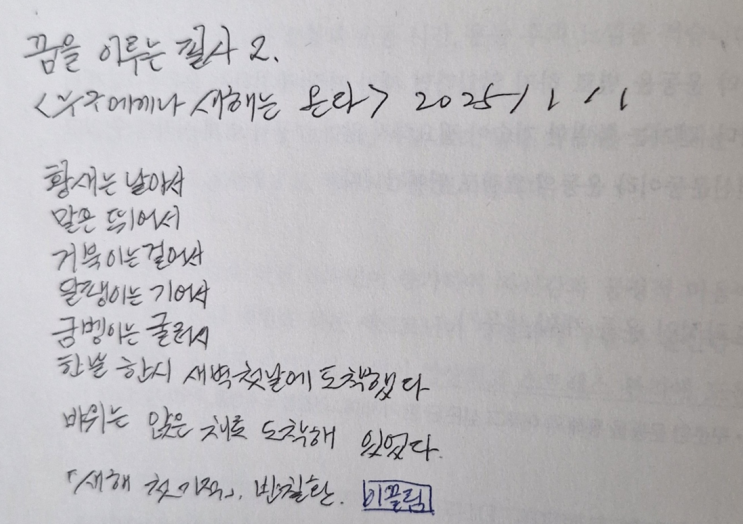 꿈을 이루는 필사 2.
<누구에게나 새해는 온다> 2025/1/1
황새는 날아서
말은 뛰어서
거북이는 걸어서
달팽이는 기어서
굼벵이는 굴러서
한날 한시 새벽 첫날에 도착했다
바위는 앉은 채로 도착해 있었다.
「새해 첫 기적」, 반칠환. 이끌림